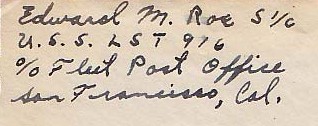 Edward M. Roe S 1/c
U.S.S. LST 916
c/o Fleet Post Office
San Francisco, Cal.